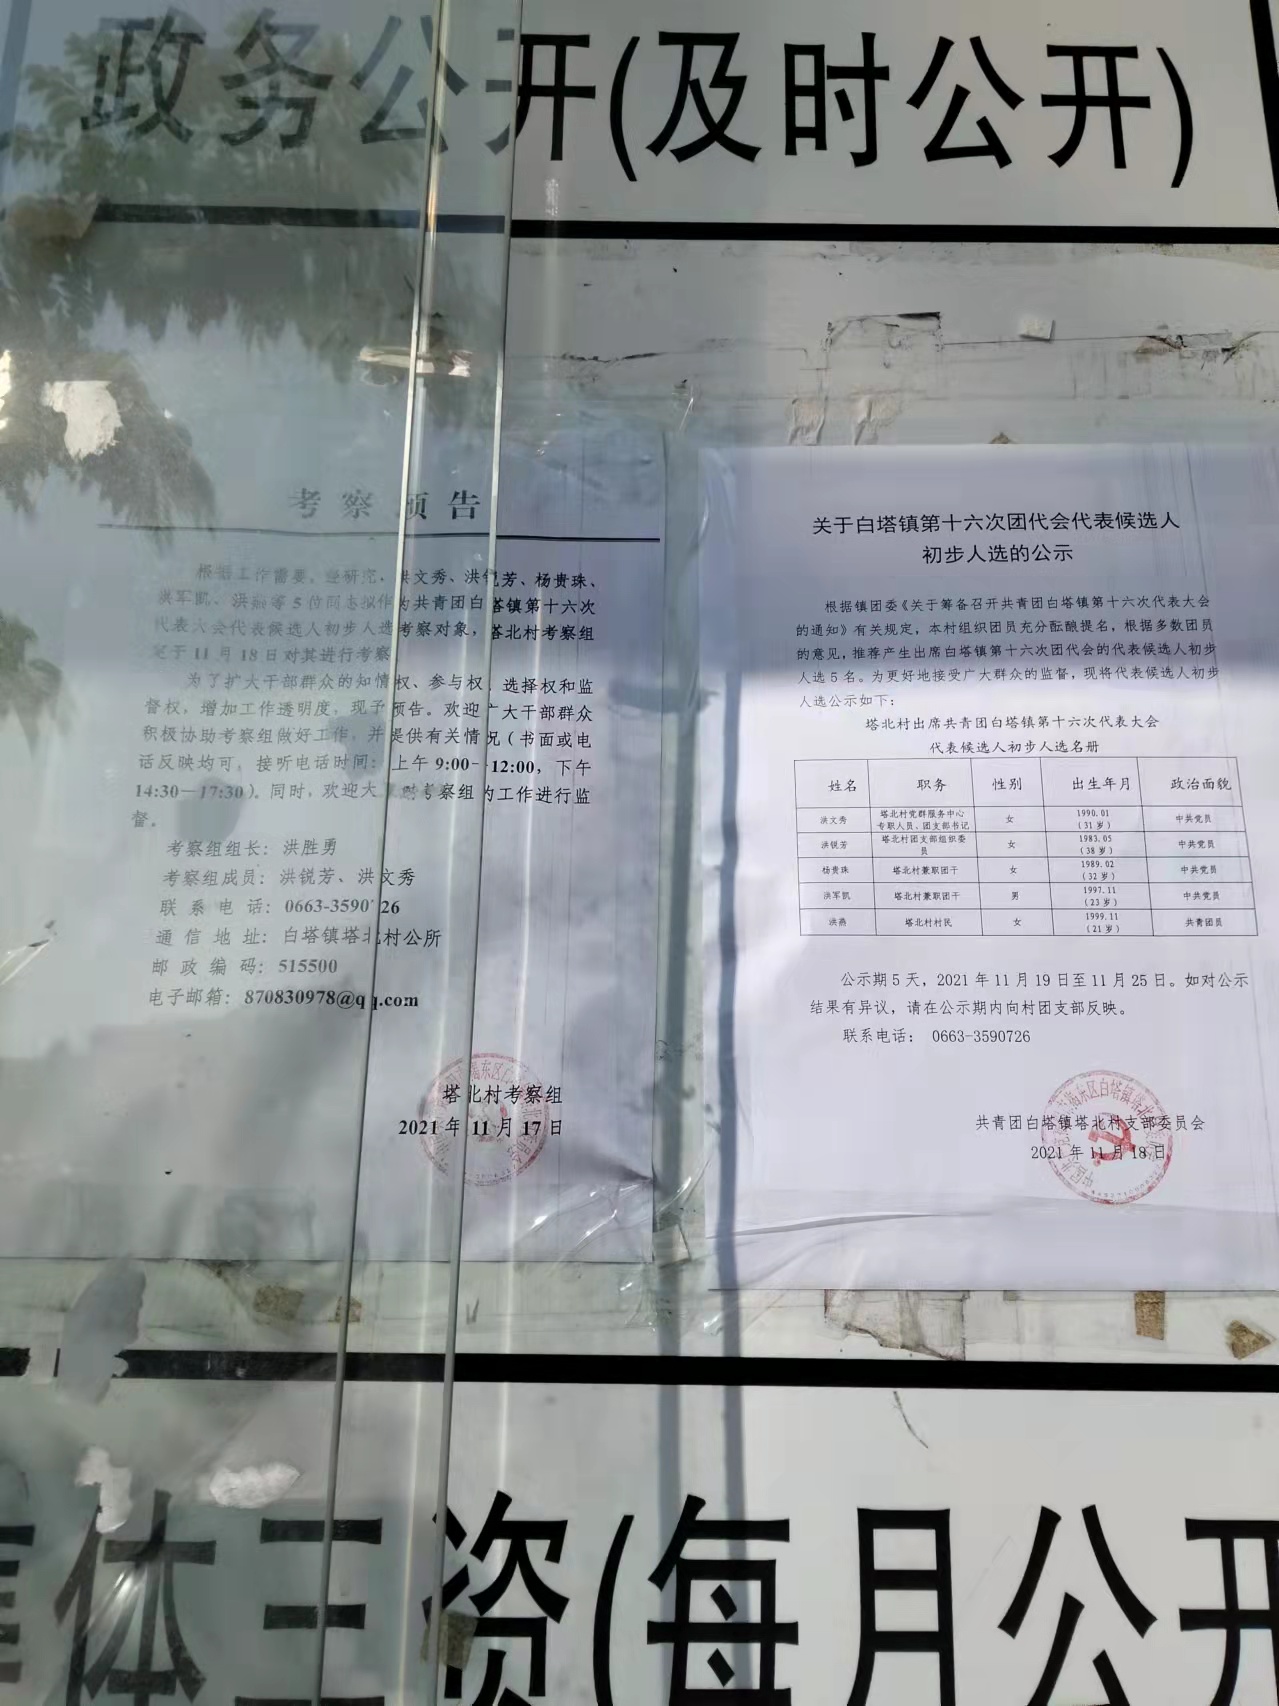 政务公开(及时公开)
考察预告
根据工作需要，经研究，洪文秀、洪锐芳、杨贵珠、
洪军凯、洪燕等5位同志拟作为共青团白塔镇第十六次
代表大会代表候选人初步人选考察对象，塔北村考察组
定于11月18日对其进行考察
为了扩大干部群众的知情权、参与权、选择权和监
督权，增加工作透明度，现予预告。欢迎广大干部群众
积极协助考察组做好工作，并提供有关情况（书面或电
话反映均可，接听电话时间：上午9:00-12:00，下午
14:30—17:30）。同时，欢迎大 对考察组的工作进行监
督。
考察组组长：洪胜勇
考察组成员：洪锐芳、洪文秀
联系电话：0663-3590726
通信地址：白塔镇塔北村公所
邮政编码：515500
电子邮箱：870830978@qq.com
塔北村考察组
2021年11月17日
关于白塔镇第十六次团代会代表候选人
初步人选的公示
根据镇团委《关于筹备召开共青团白塔镇第十六次代表大会
的通知》有关规定，本村组织团员充分酝酿提名，根据多数团员
的意见，推荐产生出席白塔镇第十六次团代会的代表候选人初步
人选5名。为更好地接受广大群众的监督，现将代表候选人初步
人选公示如下：
塔北村出席共青团白塔镇第十六次代表大会
代表候选人初步人选名册
姓名 职务 性别 出生年月 政治面貌
洪文秀 塔北村党群服务中心专职人员、团支部书记 女 1990.01（31岁） 中共党员
洪锐芳 塔北村团支部组织委员 女 1983.05（38岁） 中共党员
杨贵珠 塔北村兼职团干 女 1989.02（32岁） 中共党员
洪军凯 塔北村兼职团干 男 1997.11（23岁） 中共党员
洪燕 塔北村村民 女 1999.11（21岁） 共青团员
公示期5天，2021年11月19日至11月25日。如对公示
结果有异议，请在公示期内向村团支部反映。
联系电话： 0663-3590726
共青团白塔镇塔北村支部委员会
2021年11月18日
集体三资(每月公开